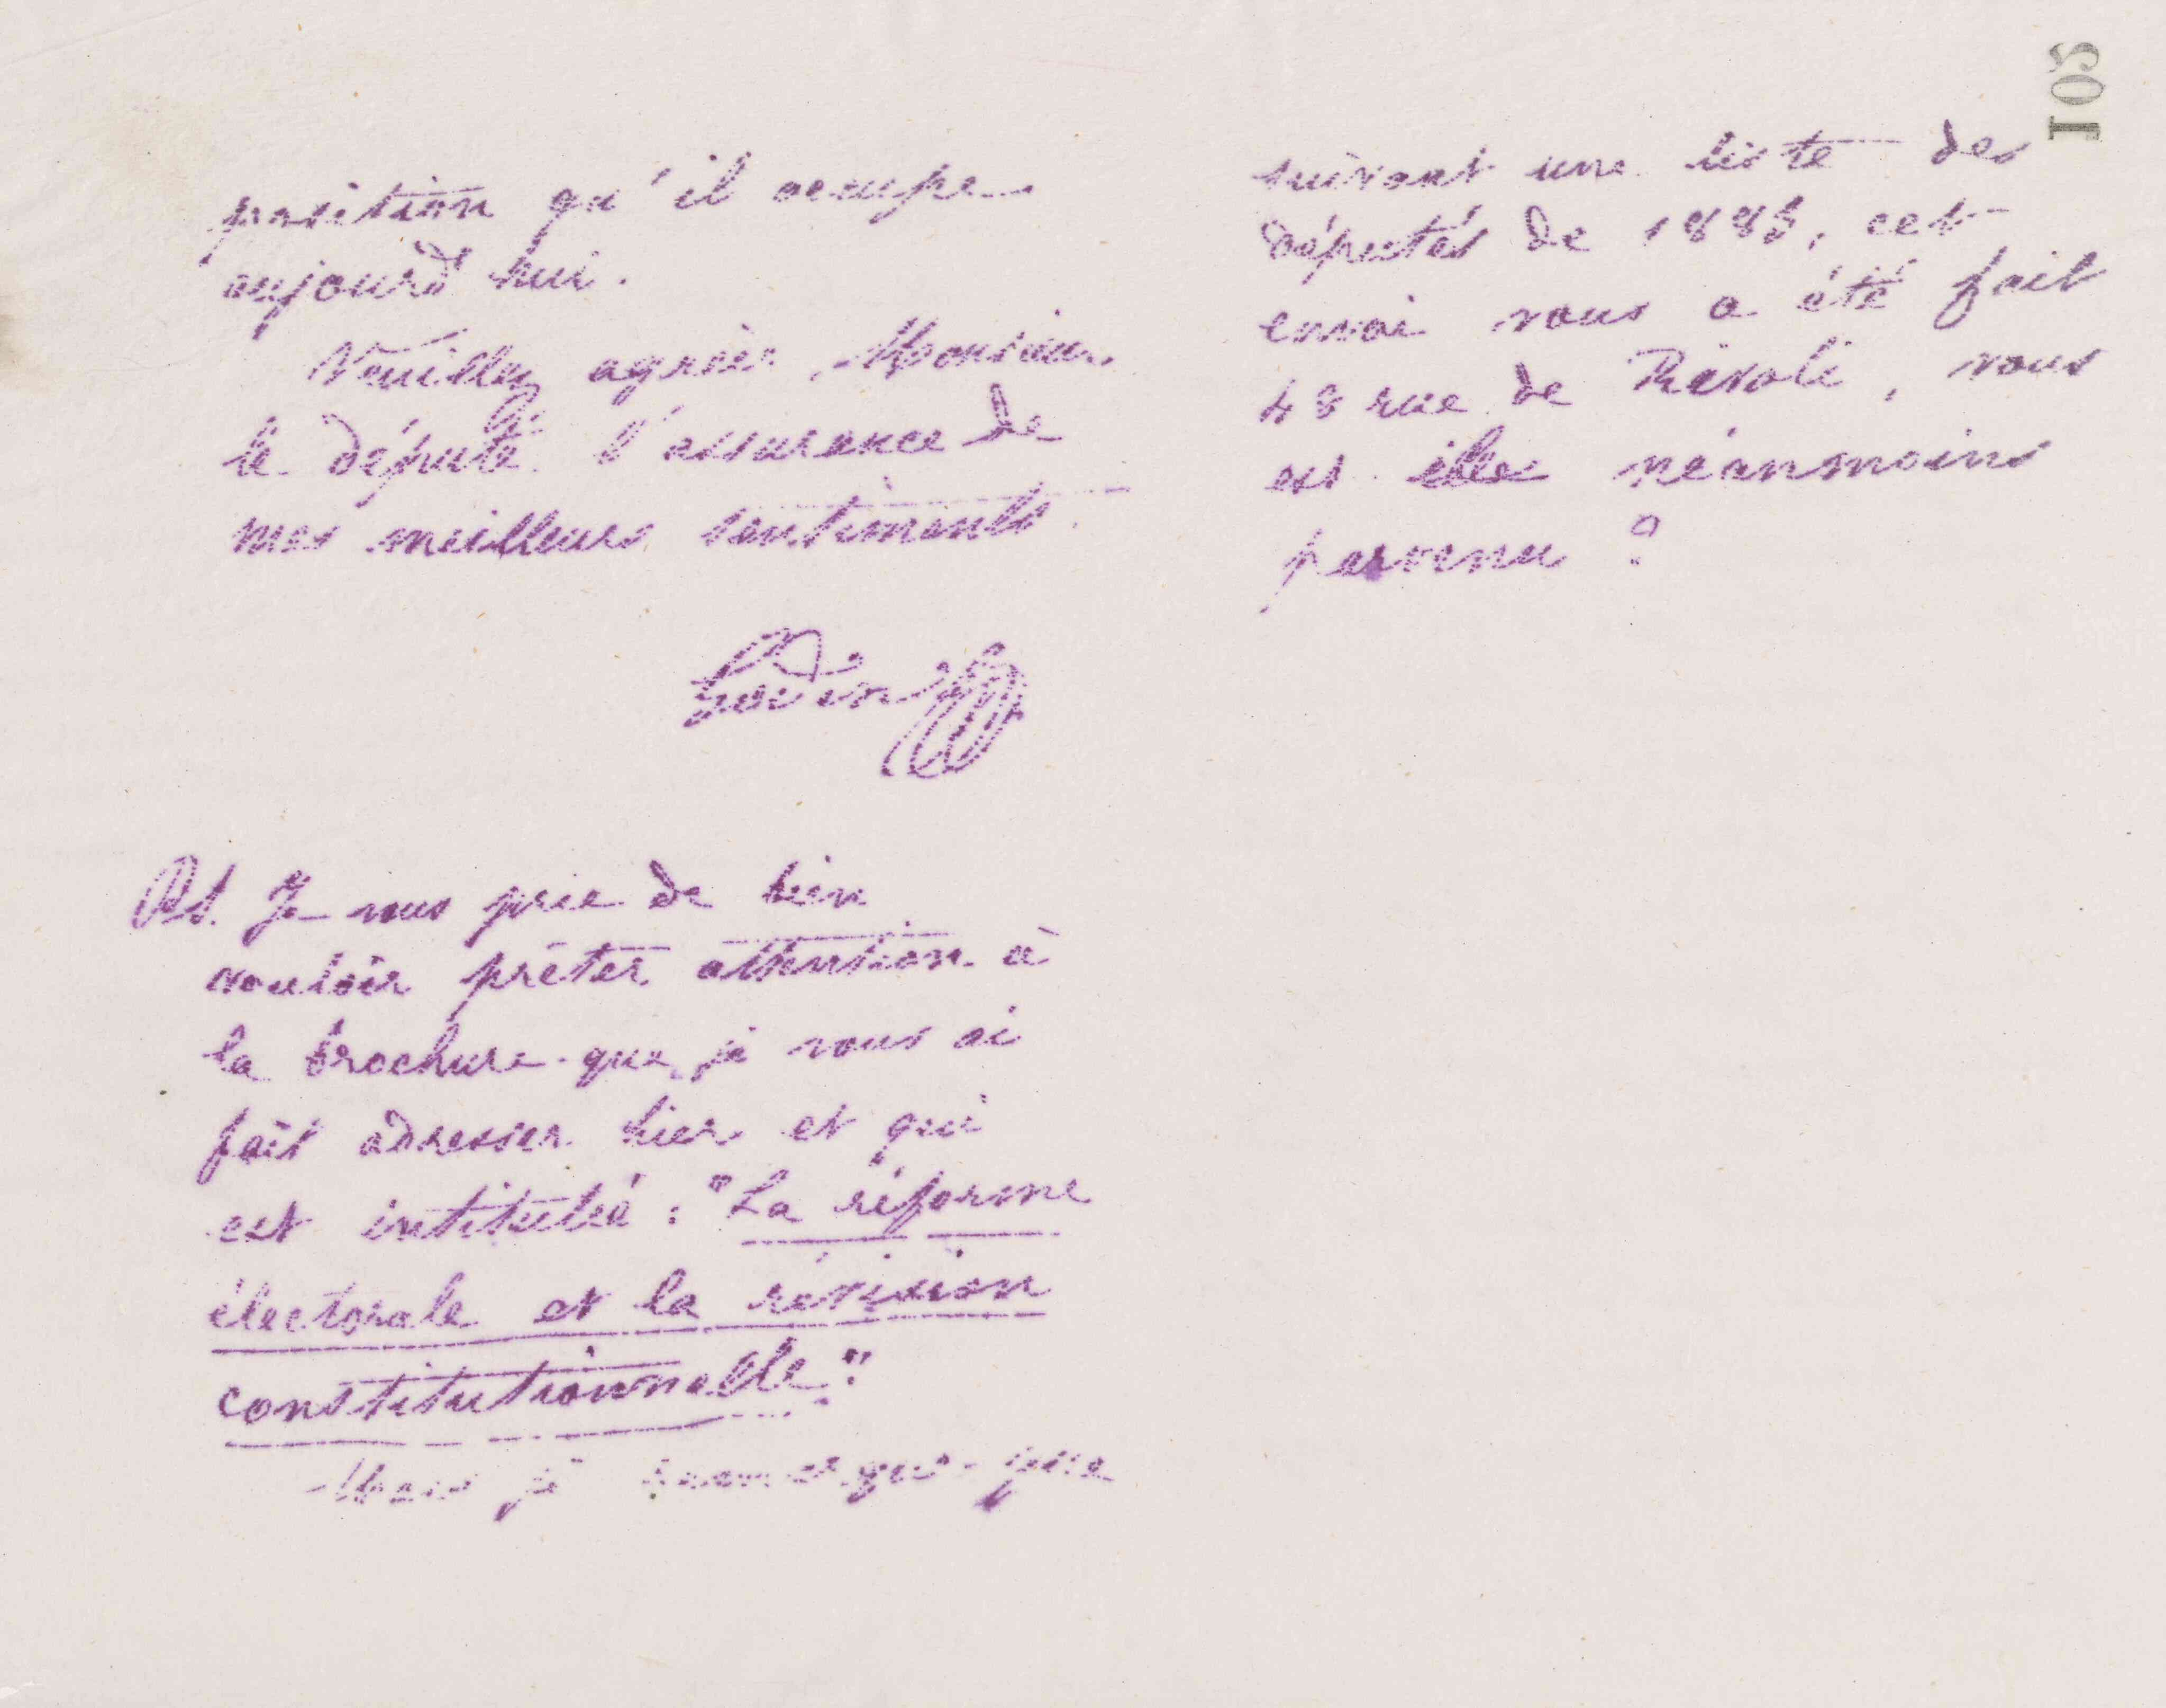 position qu'il occupe
aujourd'hui.
Veuillez agréer, Monsieur
le député l'assurance de
mes meilleurs sentiments.
Godin
Ps. Je vous prie de bien
vouloir prêter attention à
la brochure que je vous ai
fait adresser hier et qui
est intitulée : "La réforme
électorale et la révision
constitutionnelle".
Mais je remarque que
105
suivant une liste des
députés de 1885, cet
envoi vous a été fait
48 rue de Rivoli, vous
est néanmoins
parvenu ?